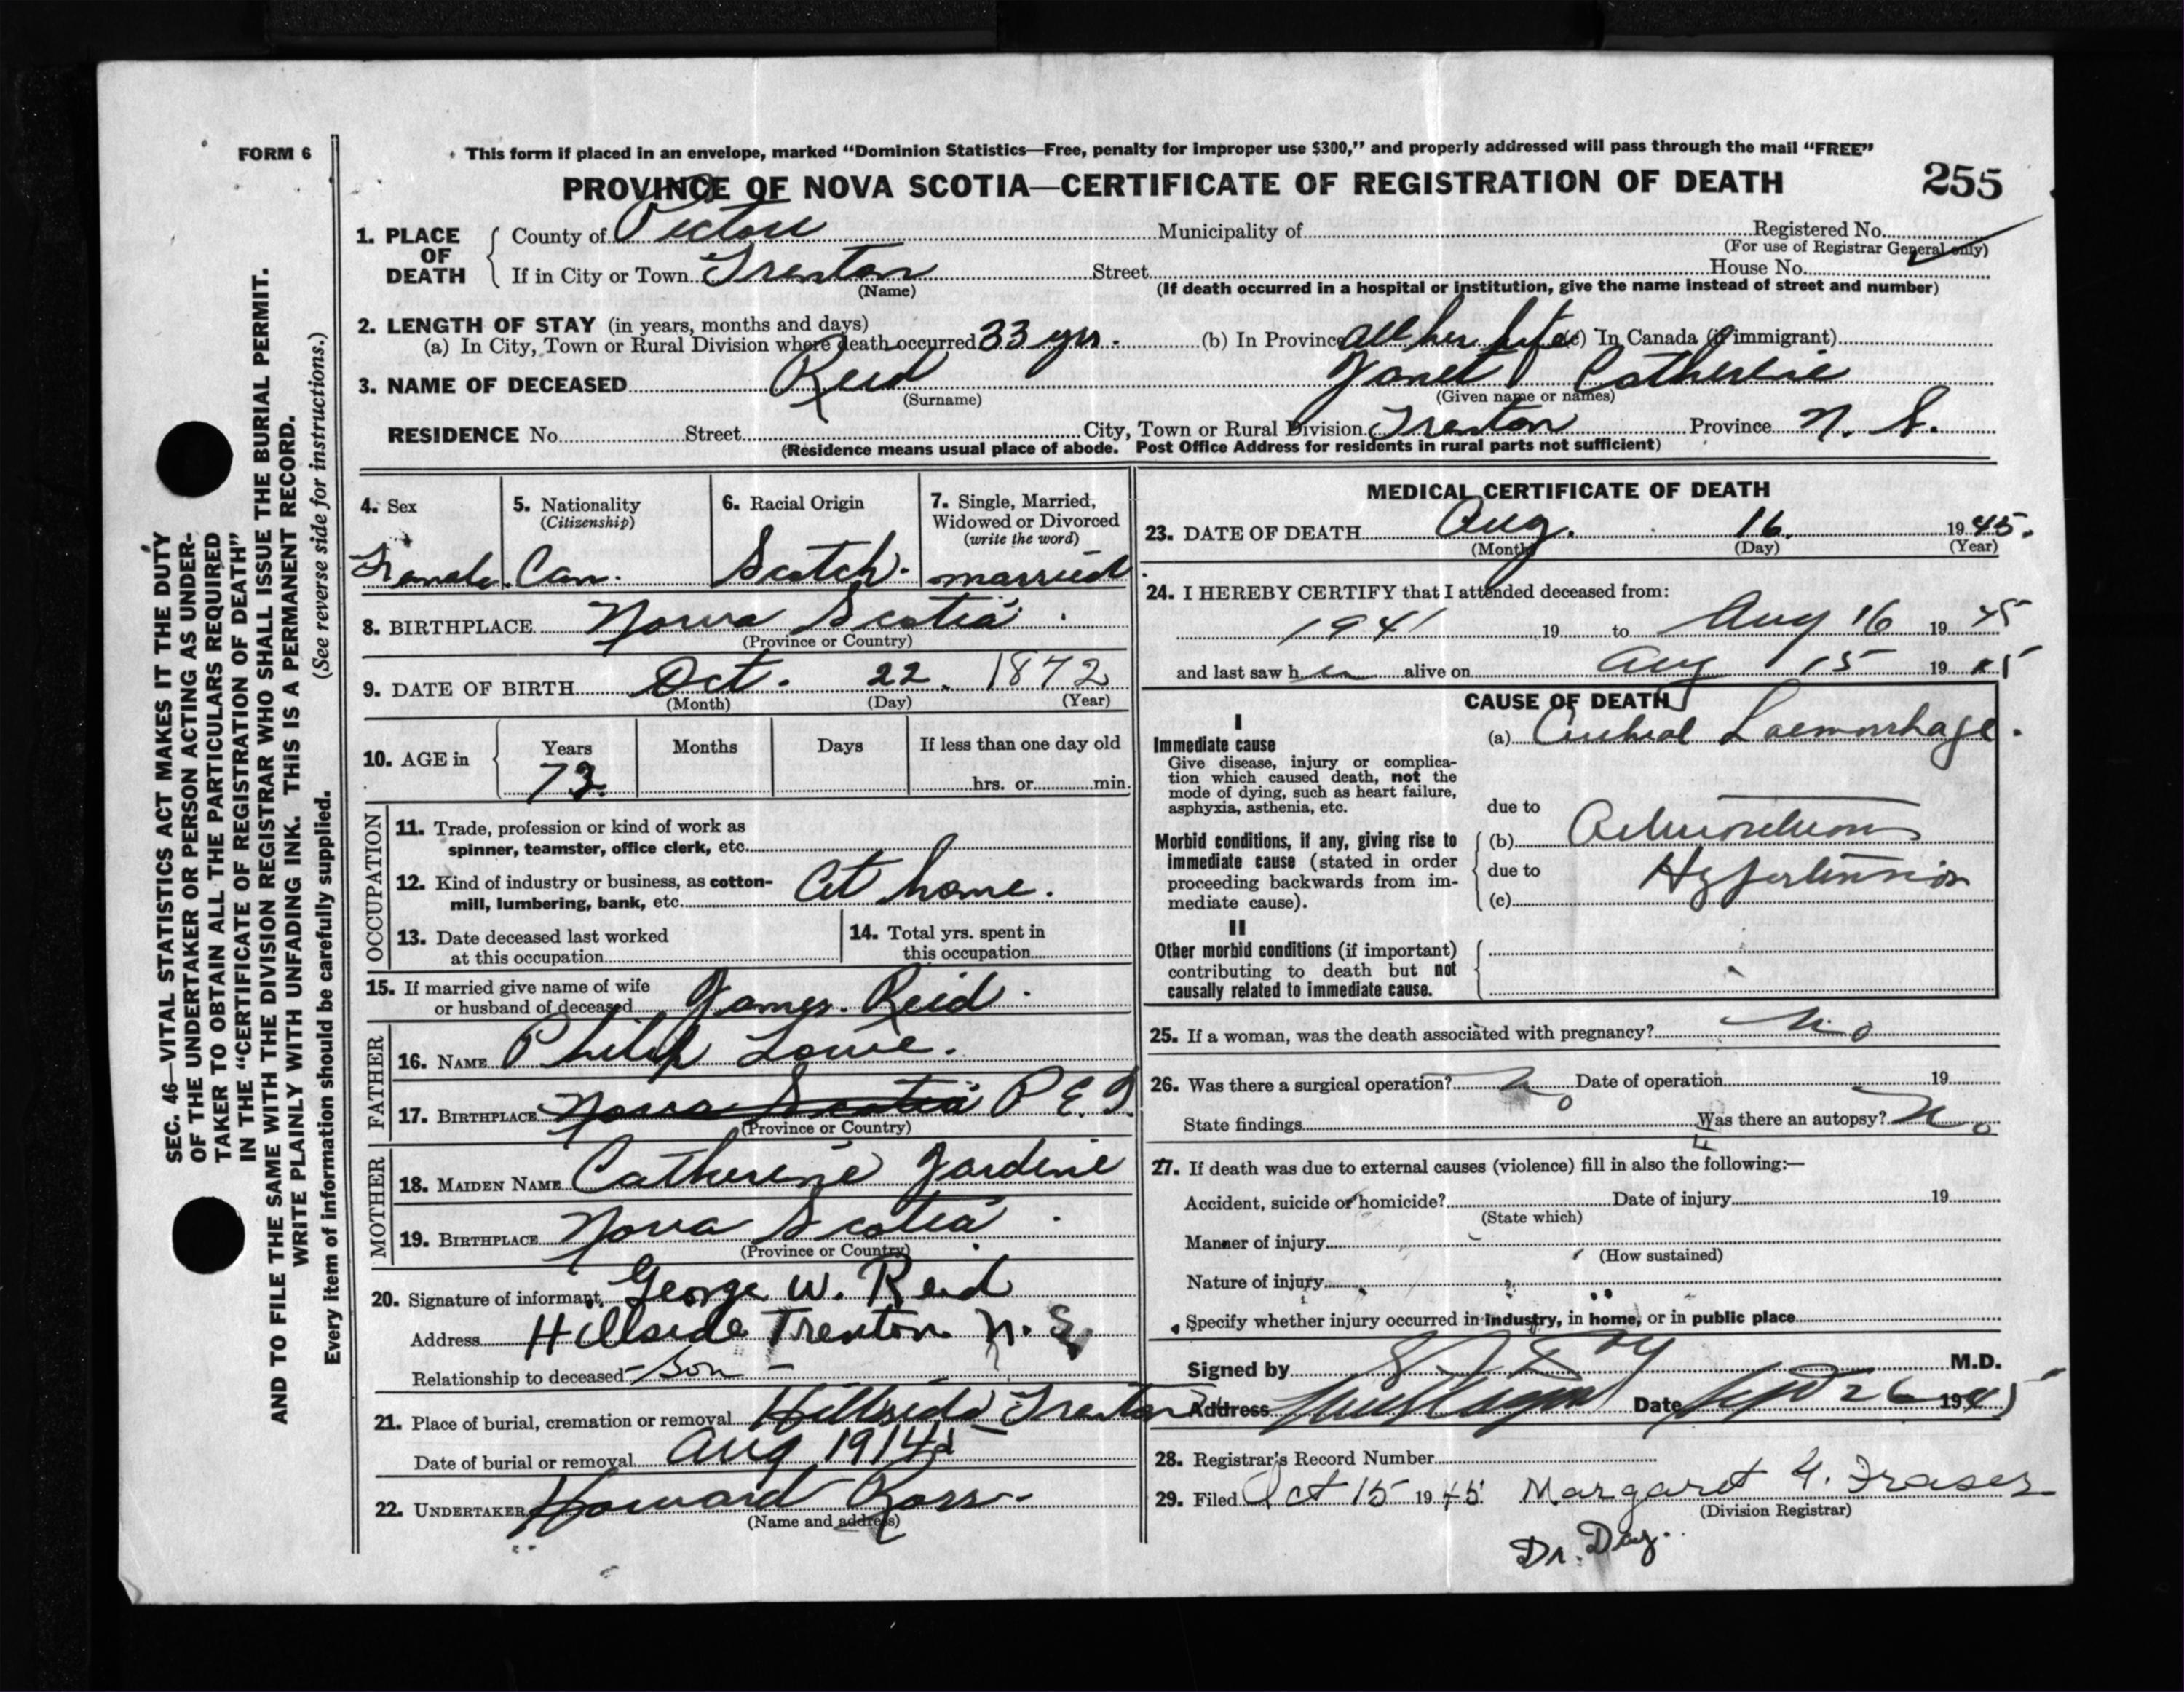 FORM 6
This form if placed in an envelope, marked “Dominion Statistics—Free, penalty for improper use $300,” and properly addressed will pass through the mail “FREE”
PROVINCE OF NOVA SCOTIA—CERTIFICATE OF REGISTRATION OF DEATH
255
1. PLACE OF DEATH
County of Pictou Municipality of Registered No.
(For use of Registrar General only)
If in City or Town Trenton Street House No.
(Name)
(If death occurred in a hospital or institution, give the name instead of street and number)
2. LENGTH OF STAY (in years, months and days)
(a) In City, Town or Rural Division where death occurred 33 yrs. (b) In Province all her life (c) In Canada (if immigrant)
3. NAME OF DECEASED Reid Janet Catherine
(Surname) (Given name or names)
RESIDENCE No. Street City, Town or Rural Division Trenton Province N. S.
(Residence means usual place of abode. Post Office Address for residents in rural parts not sufficient)
4. Sex
Female.
5. Nationality
(Citizenship)
Can.
6. Racial Origin
Scotch.
7. Single, Married,
Widowed or Divorced
(write the word)
married
8. BIRTHPLACE Nova Scotia
(Province or Country)
9. DATE OF BIRTH Oct. 22. 1872
(Month) (Day) (Year)
10. AGE in
Years Months Days If less than one day old
hrs. or min.
OCCUPATION
11. Trade, profession or kind of work as
spinner, teamster, office clerk, etc.
12. Kind of industry or business, as cotton-
mill, lumbering, bank, etc. At home.
13. Date deceased last worked
at this occupation
14. Total yrs. spent in
this occupation
15. If married give name of wife
or husband of deceased James Reid.
FATHER
16. NAME Philip Lowe.
17. BIRTHPLACE Nova Scotia P E I.
(Province or Country)
MOTHER
18. MAIDEN NAME Catherine Jardine
19. BIRTHPLACE Nova Scotia
(Province or Country)
20. Signature of informant George W. Reid
Address Hillside Trenton N. S.
Relationship to deceased Son
21. Place of burial, cremation or removal Hillside Trenton
Date of burial or removal Aug 19
22. UNDERTAKER Howard Ross.
(Name and address)
MEDICAL CERTIFICATE OF DEATH
23. DATE OF DEATH Aug. 16. 1945.
(Month) (Day) (Year)
24. I HEREBY CERTIFY that I attended deceased from:
1941 19 to Aug 16 1945
and last saw her alive on Aug 15 1945
CAUSE OF DEATH
I
Immediate cause
Give disease, injury or complica-
tion which caused death, not the
mode of dying, such as heart failure,
asphyxia, asthenia, etc.
(a) Cerebral Haemorrhage.
due to
Morbid conditions, if any, giving rise to
immediate cause (stated in order
proceeding backwards from im-
mediate cause).
(b)
due to Hypertension
(c)
II
Other morbid conditions (if important)
contributing to death but not
causally related to immediate cause.
25. If a woman, was the death associated with pregnancy? No
26. Was there a surgical operation? No Date of operation 19
State findings Was there an autopsy? No
27. If death was due to external causes (violence) fill in also the following:—
Accident, suicide or homicide? Date of injury 19
(State which)
Manner of injury
(How sustained)
Nature of injury
Specify whether injury occurred in industry, in home, or in public place
Signed by M.D.
Address Date 26 1945
28. Registrar's Record Number
29. Filed Oct 15 1945 Margaret G. Fraser
(Division Registrar)
Dr. Day.
SEC. 46—VITAL STATISTICS ACT MAKES IT THE DUTY
OF THE UNDERTAKER OR PERSON ACTING AS UNDER-
TAKER TO OBTAIN ALL THE PARTICULARS REQUIRED
IN THE “CERTIFICATE OF REGISTRATION OF DEATH”
AND TO FILE THE SAME WITH THE DIVISION REGISTRAR WHO SHALL ISSUE THE BURIAL PERMIT.
WRITE PLAINLY WITH UNFADING INK. THIS IS A PERMANENT RECORD.
Every item of information should be carefully supplied. (See reverse side for instructions.)